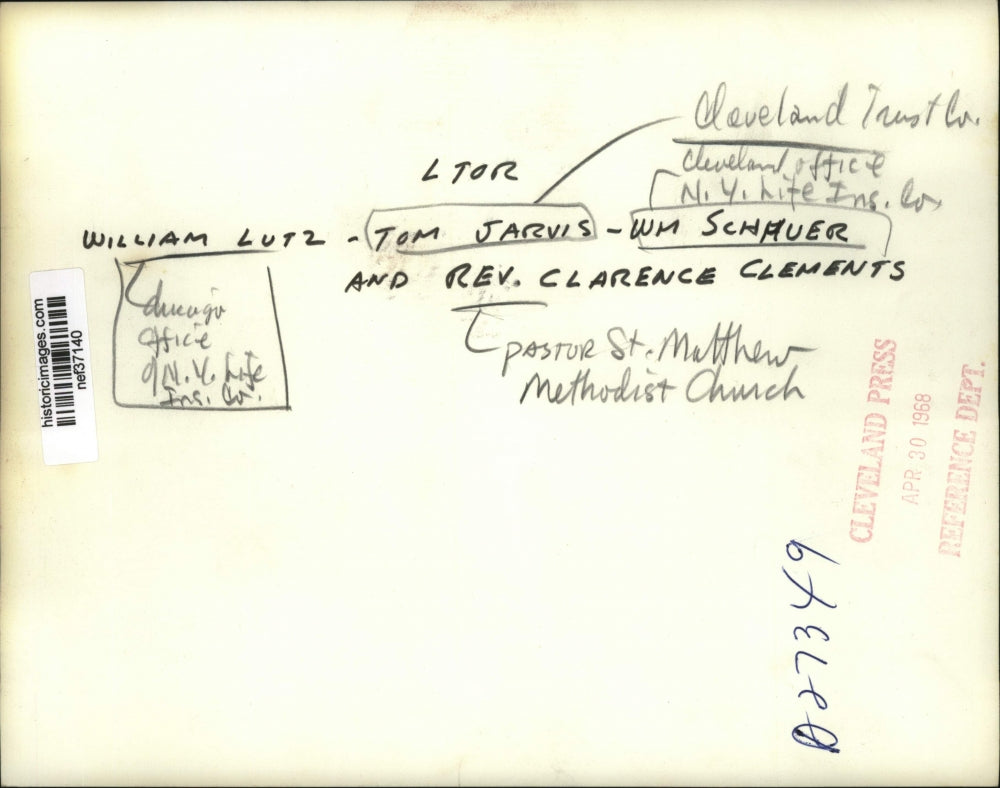 Cleveland Trust Co.
Cleveland office
N.Y. Life Ins. Co.
L TO R
WILLIAM LUTZ - TOM JARVIS - WM SCHAUER
AND REV. CLARENCE CLEMENTS
Chicago
office
of N.Y. Life
Ins. Co.
PASTOR St. Matthew
Methodist Church
historicimages.com
nef37140
CLEVELAND PRESS
APR 30 1968
REFERENCE DEPT.